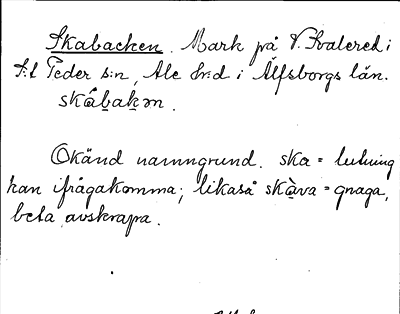 Skabacken. Mark på V. Kvalered i
S:t Peder s:n, Ale h:d i Älfsborgs län.
skåbakən.
Okänd namngrund. ska = lutning
kan ifrågakomma; likaså skàva = gnaga,
beta, avskrapa.